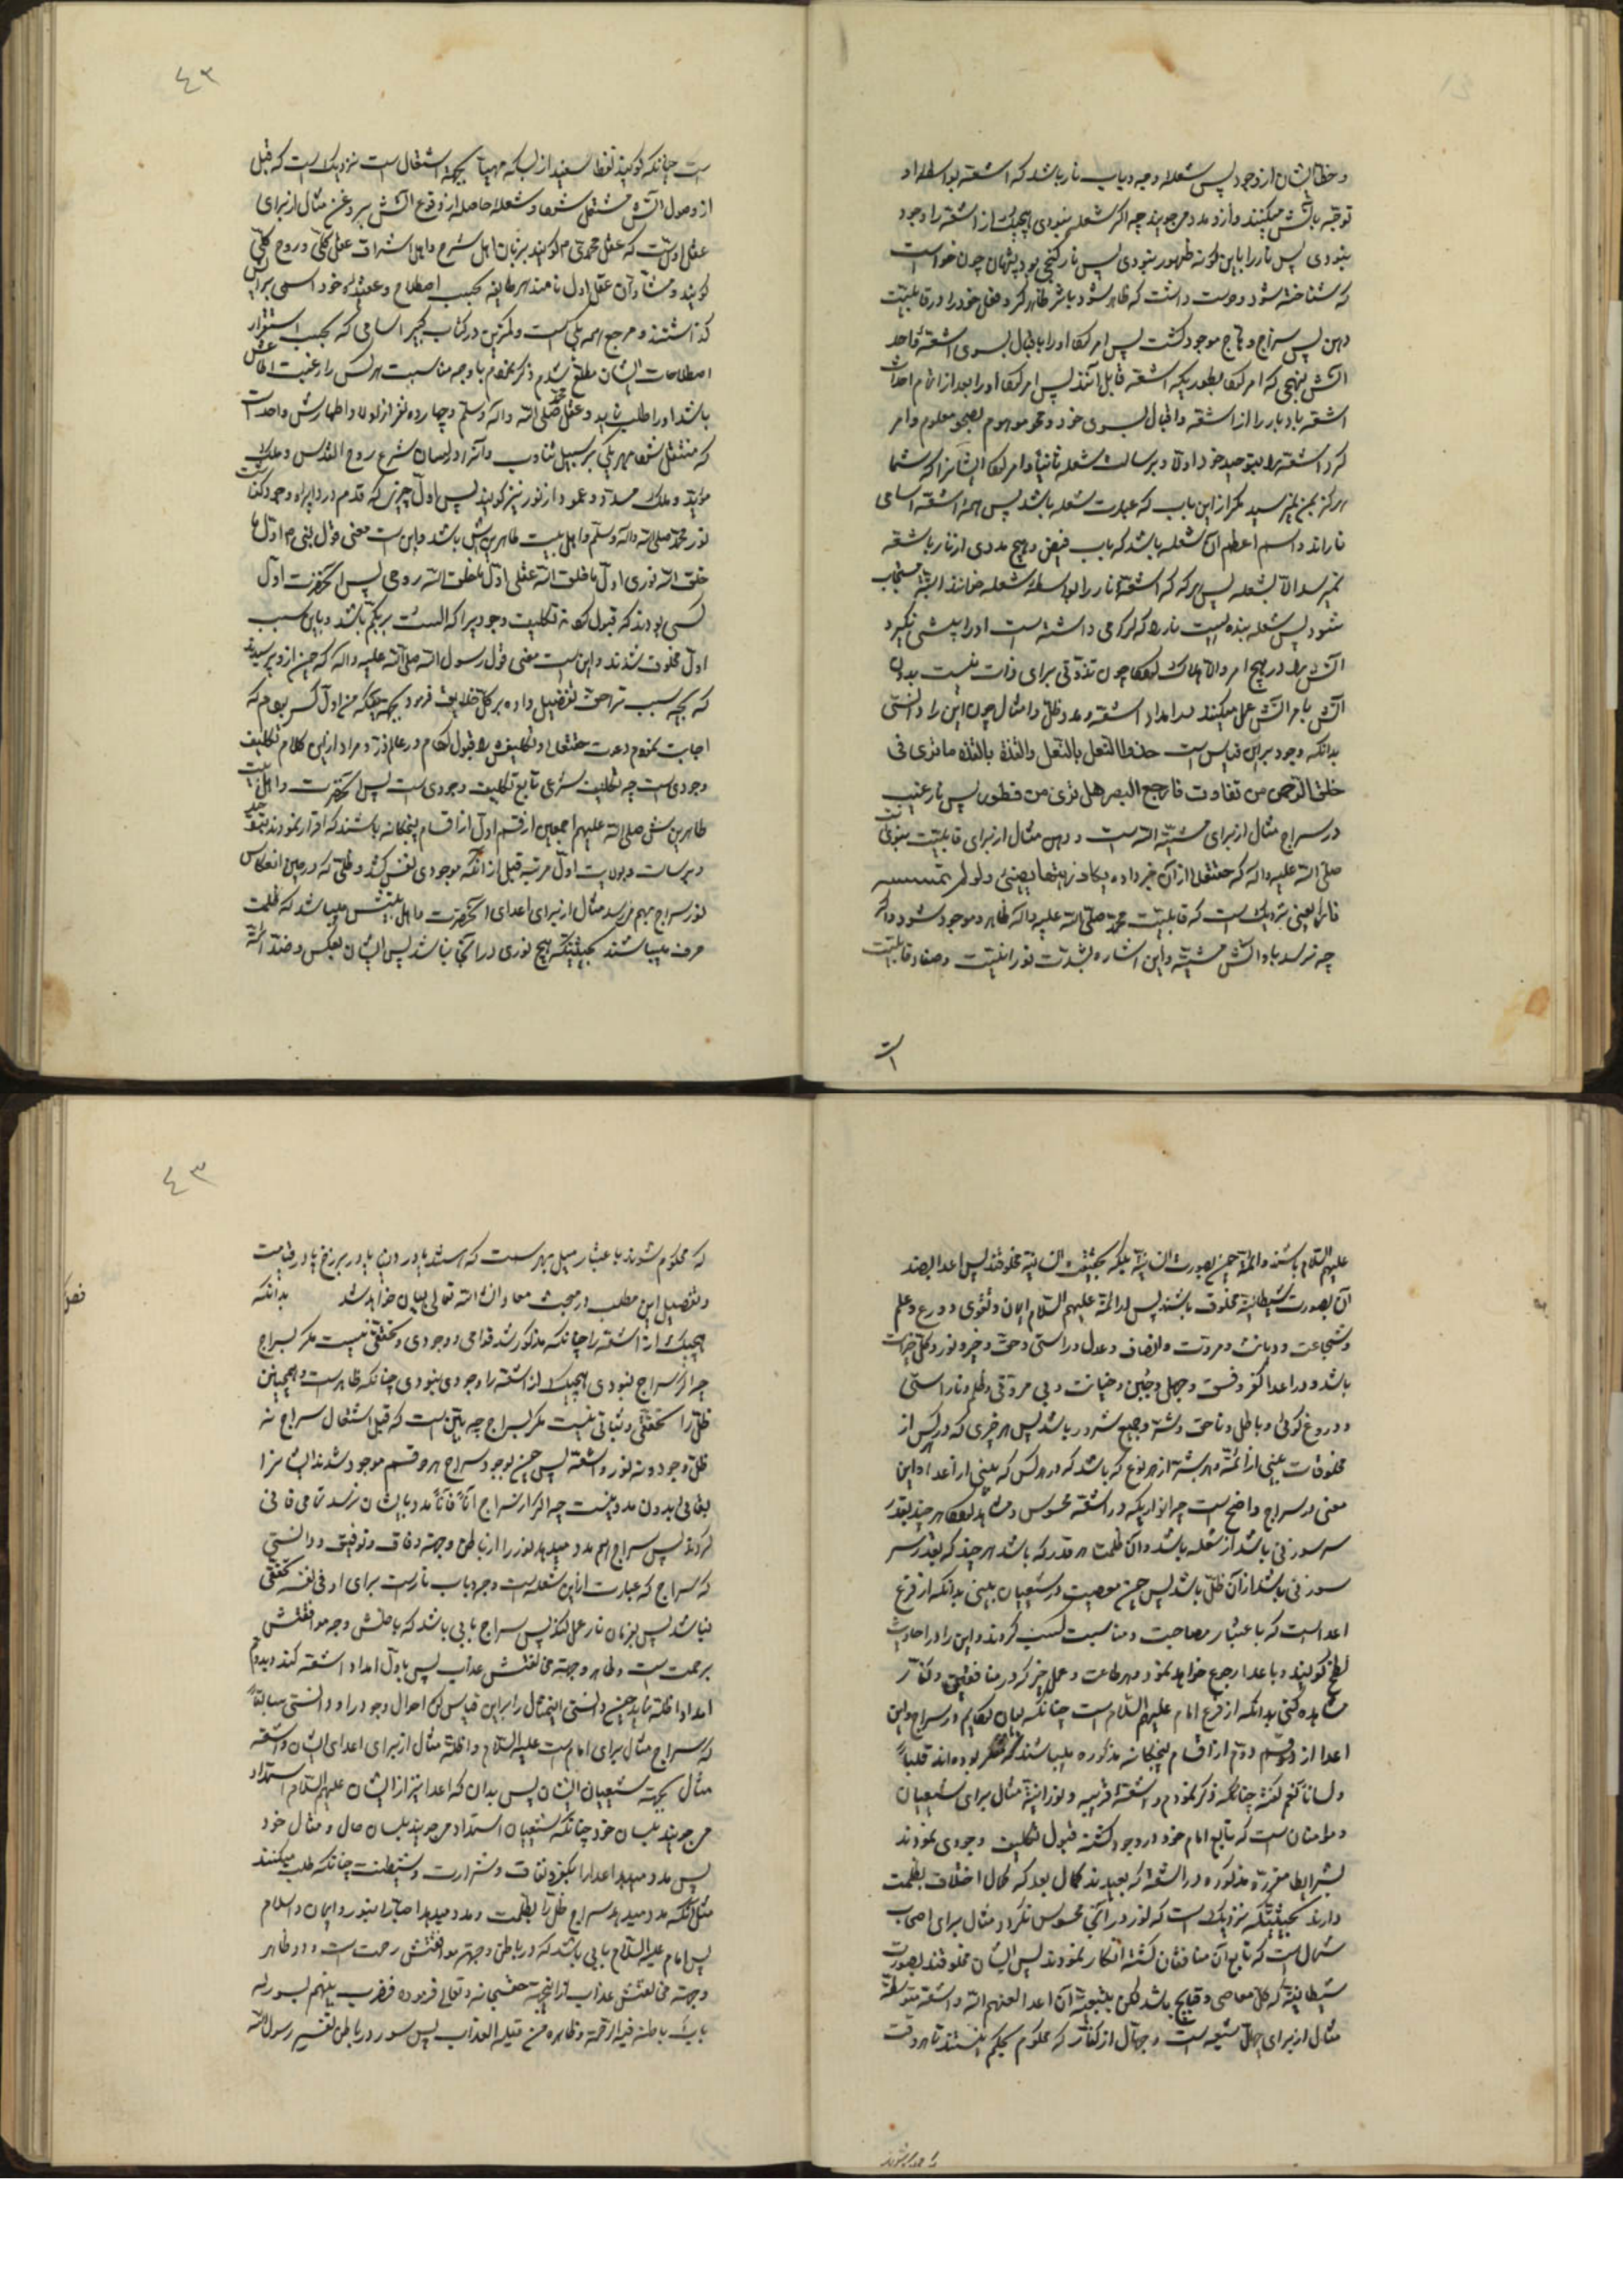 و خطابشان از وجود پس شعله وجه و باب نار باشد که اشعه بواسطه او
توجه بآتش میکنند و از او مدد میجویند چه اگر شعله نبودی هیچیک از اشعه را وجود
نبودی پس نار را باین گونه ظهور نبودی پس نار گنجی بود پنهان چون خواست
که شناخته شود دوست داشت که ظاهر شود باثر ظاهر کرد فعل خود را در قابلیت
دهن پس سراج وهاج موجود گشت پس امر کرد او را باقبال بسوی اشعه
آتش بنهجی که امر کرد بطوریکه اشعه قابل آنند پس امر کرد او را بعد از اتمام احداث
اشعه بادبار را از اشعه و اقبال بسوی خود و محو موهوم بصحو معلوم و امر
کرد اشعه را بتوحید خود اولا و برسالت شعله ثانیا و امر کرد ایشانرا که شما
هرگز بمن نمیرسید مگر از این باب که عبارت شعله باشد پس همه اشعه اسامی
نارند و اسم اعظم آن شعله باشد که باب فیض و هیچ مددی از نار باشعه
نمیرسد الا بشعله پس هر که که اشعه نار را بواسطه شعله خوانند البته مستجاب
شود پس شعله بنده ایست نار را که گرامی داشته است او را پیشی نگیرد
آتش را در هیچ امر و الا هلاک
آتش بامر آتش عمل میکند در امداد اشعه و مدد ظل و امثال چون این را دانستی
بدانکه وجود براین قیاس است حذو النعل بالنعل والقذه بالقذه ما تری فی
خلق الرحمن من تفاوت فارجع البصر هل تری من فطور پس نار غیب
در سراج مثال از برای مشیه الله است و دهن مثال از برای قابلیت نبوی
صلی الله علیه و اله که حقتعالی از آن خبر داده یکاد زیتها یضیئ ولو لم تمسسه
نار یعنی نزدیک است که قابلیت محمد صلی الله علیه و اله ظاهر و موجود شود و اگر
چه نرسد باو آتش مشیه و این اشاره بشدت نورانیت و صفاء قابلیت
ت
٤٢
ست چنانکه گویند نفط سفید از بسکه مهیا بجهة اشتعال است نزدیک است که قبل
از وصول آتش مشتعل شود و شعله حاصله از وقوع آتش بر روغن مثال از برای
عقل اول است که عقل محمدی گویند بزبان اهل شرع و اهل اشراق عقل کلی و روح کلی
گویند و مشاء آن عقل اول نامند هر طایفه بحسب اصطلاح و عقیده خود اسمی برایش
گذاشتند و مرجع همه یکیست و کمترین در کتاب کبیر اسامی که بحسب استقرار
اصطلاحات ایشان مطلع شدم ذکر نمودم با وجه مناسبت هر کس را رغبت اطلاعش
باشد او را طلب نماید و عقل محمد صلی الله و اله و سلم و چهارده نفر از اولاد اطهارش واحد است
که منتقل شود بهر یکی بر سبیل تناوب و آنرا در لسان شرع روح القدس و ملک
مؤید و ملک مسدد و عمود از نور نیز گویند پس اول چیزی که قدم در دایره وجود گذاشت
نور محمد صلی الله و اله و سلم و اهل بیت طاهرینش باشد و این است معنی قول نبی ص اول ما
خلق الله نوری اول ما خلق الله عقلی اول ما خلق الله روحی پس آنحضرت اول
کسی بودند که قبول کردند تکلیف وجودیرا که الست بربکم باشد و باین سبب
اول مخلوق شدند و این است معنی قول رسول الله صلی الله علیه و اله که چون از او پرسیدند
که بچه سبب ترا حق تفضیل داده بر کل خلایق فرمود بجهة اینکه من اول کسی بودم که
اجابت نمودم دعوت حقتعالی و تکلیفش را قبول کردم در عالم ذر و مراد از این کلام تکلیف
وجودی است چه تکلیف شرعی تابع تکلیف وجودی است پس آنحضرت و اهل بیت
طاهرینش صلی الله علیهم اجمعین از قسم اول از اقسام پنجگانه باشند که اقرار نمودند بتوحید
و برسالت و بولایت اول مرتبه قبل از آنکه موجودی نفس کشد و ظلی که در حین انعکاس
نور سراج بهم میرسد مثال از برای اعدای آنحضرت و اهل بیتش میباشد که ظلمت
صرف میباشند بحیثیتیکه هیچ نوری در آن نباشد پس ایشان بعکس و ضد ائمه
علیهم السلام باشند و ائمه چون بصورت انسانیه بلکه بحقیقت انسانیه مخلوقند پس اعدا بضد
آن بصورت شیطانیه مخلوق باشند پس در ائمه علیهم السلام ایمان و تقوی و ورع و علم
و شجاعت و دیانت و مروت و انصاف و عدل و راستی و حق و خیر و نور و کل خیرات
باشد و در اعدا کفر و فسق و جهل و جبن و خیانت و بی مروتی و ظلم و ناراستی
و دروغ گوئی و باطل و ناحق و شر و جمیع شرور باشد پس هر خیری که در هر کس از
مخلوقات بینی از ائمه و هر شر از هر نوع که باشد که در هر کس که بینی از اعدا و این
معنی در سراج واضح است چه انواریکه در اشعه محسوس و مشاهد هر چند بقدر
سر سوزنی باشد از شعله باشد و آن ظلمت هر قدر که باشد هر چند که بقدر سر
سوزنی باشد از آن ظل باشد پس چون معصیت در شیعیان بینی بدانکه از فرع
اعداست که باعتبار مصاحبت و مناسبت کسب کردند و این را در احادیث
لطخ گویند و باعدا رجوع خواهد نمود و هر طاعت و عمل خیر که در منافقین و کفار
مشاهده کنی بدانکه از فرع امام علیهم السلام است چنانکه بیان کردیم در سراج و این
اعدا از قسم دوم از اقسام پنجگانه مذکوره میباشند که منکر بوده اند قلبا
و لسانا نعم گفته چنانکه ذکر نمودم و اشعه قریبه و نورانیه مثال برای شیعیان
و مؤمنان است که تابع امام خود در وجود گشته قبول تکلیف وجودی نمودند
بشرایط مقرره مذکوره در اشعه که بعیدند کمال بعد که کمال اختلاف بظلمت
دارند بحیثیتیکه نزدیک است که نور در آن محسوس نگردد مثال برای اصحاب
شمال است که تابع آن منافقان گشته انکار نمودند پس ایشان مخلوقند بصورت
شیطانیه که کل معاصی و قبایح باشد لکن بتبعیت آن اعدا لعنهم الله و اشعه متوسطه
مثال از برای جهال شیعه است و جهال از کفار که محکوم بحکم نیستند تا هر وقت
که محکوم شوند
٤٣
که محکوم شوند باعتبار میل بهر سمت که هستند یا در دنیا یا در برزخ یا در قیامت
و تفصیل این مطلب در مبحث معاد ان شاء الله تعالی بیان خواهد شد بدانکه
فصل
هیچیک از اشعه را چنانکه مذکور شد قوامی و وجودی و تحققی نیست مگر بسراج
چه اگر سراج نبودی هیچیک از اشعه را وجودی نبودی چنانکه ظاهر است و همچنین
ظل را تحققی و ثباتی نیست مگر بسراج چه بین است که قبل اشتعال سراج نه
ظل وجود و نه نور و اشعه پس چون بوجود سراج هر دو قسم موجود شدند ایشانرا
بقائی بدون مدد نیست چه اگر از سراج آنا فآنا مدد بایشان نرسد تمامی فانی
گردند پس سراج هم مدد میدهد نور را از باطن و جهة وفاق و توفیق و دانستی
که سراج که عبارت از این شعله است وجه و باب نار است برای او فی نفسه تحققی
نباشد پس بفرمان نار عمل کند پس سراج بابی باشد که باطنش وجه موافقتش
رحمت است و ظاهر و جهة مخالفتش عذاب پس باول امداد اشعه کند و بدوم
امداد اظله نماید چون دانستی این مثال را براین قیاس کن احوال وجود را و دانستی سابقا
که سراج مثال برای امام است علیه السلام و اظله مثال از برای اعدای ایشان و اشعه
مثال بجهة شیعیان ایشان پس بدان که اعدا نیز از ایشان علیهم السلام استمداد
میجویند بلسان خود چنانکه شیعیان استمداد میجویند بلسان حال و مثال خود
پس مدد میدهد اعدا را بکفر و نفاق و شرارت و شیطنت چنانکه طلب میکنند
مثل آنکه مدد میدهد سراج ظل را بظلمت و مدد میدهد احبا را بنور و ایمان و اسلام
پس امام علیه السلام بابی باشد که در باطن و جهة موافقتش رحمت است و در ظاهر
و جهة مخالفتش عذاب از اینجهة حق سبحانه و تعالی فرموده فضرب بینهم بسور له
باب باطنه فیه الرحمه و ظاهره من قبله العذاب پس سور در باطن تفسیر رسول الله